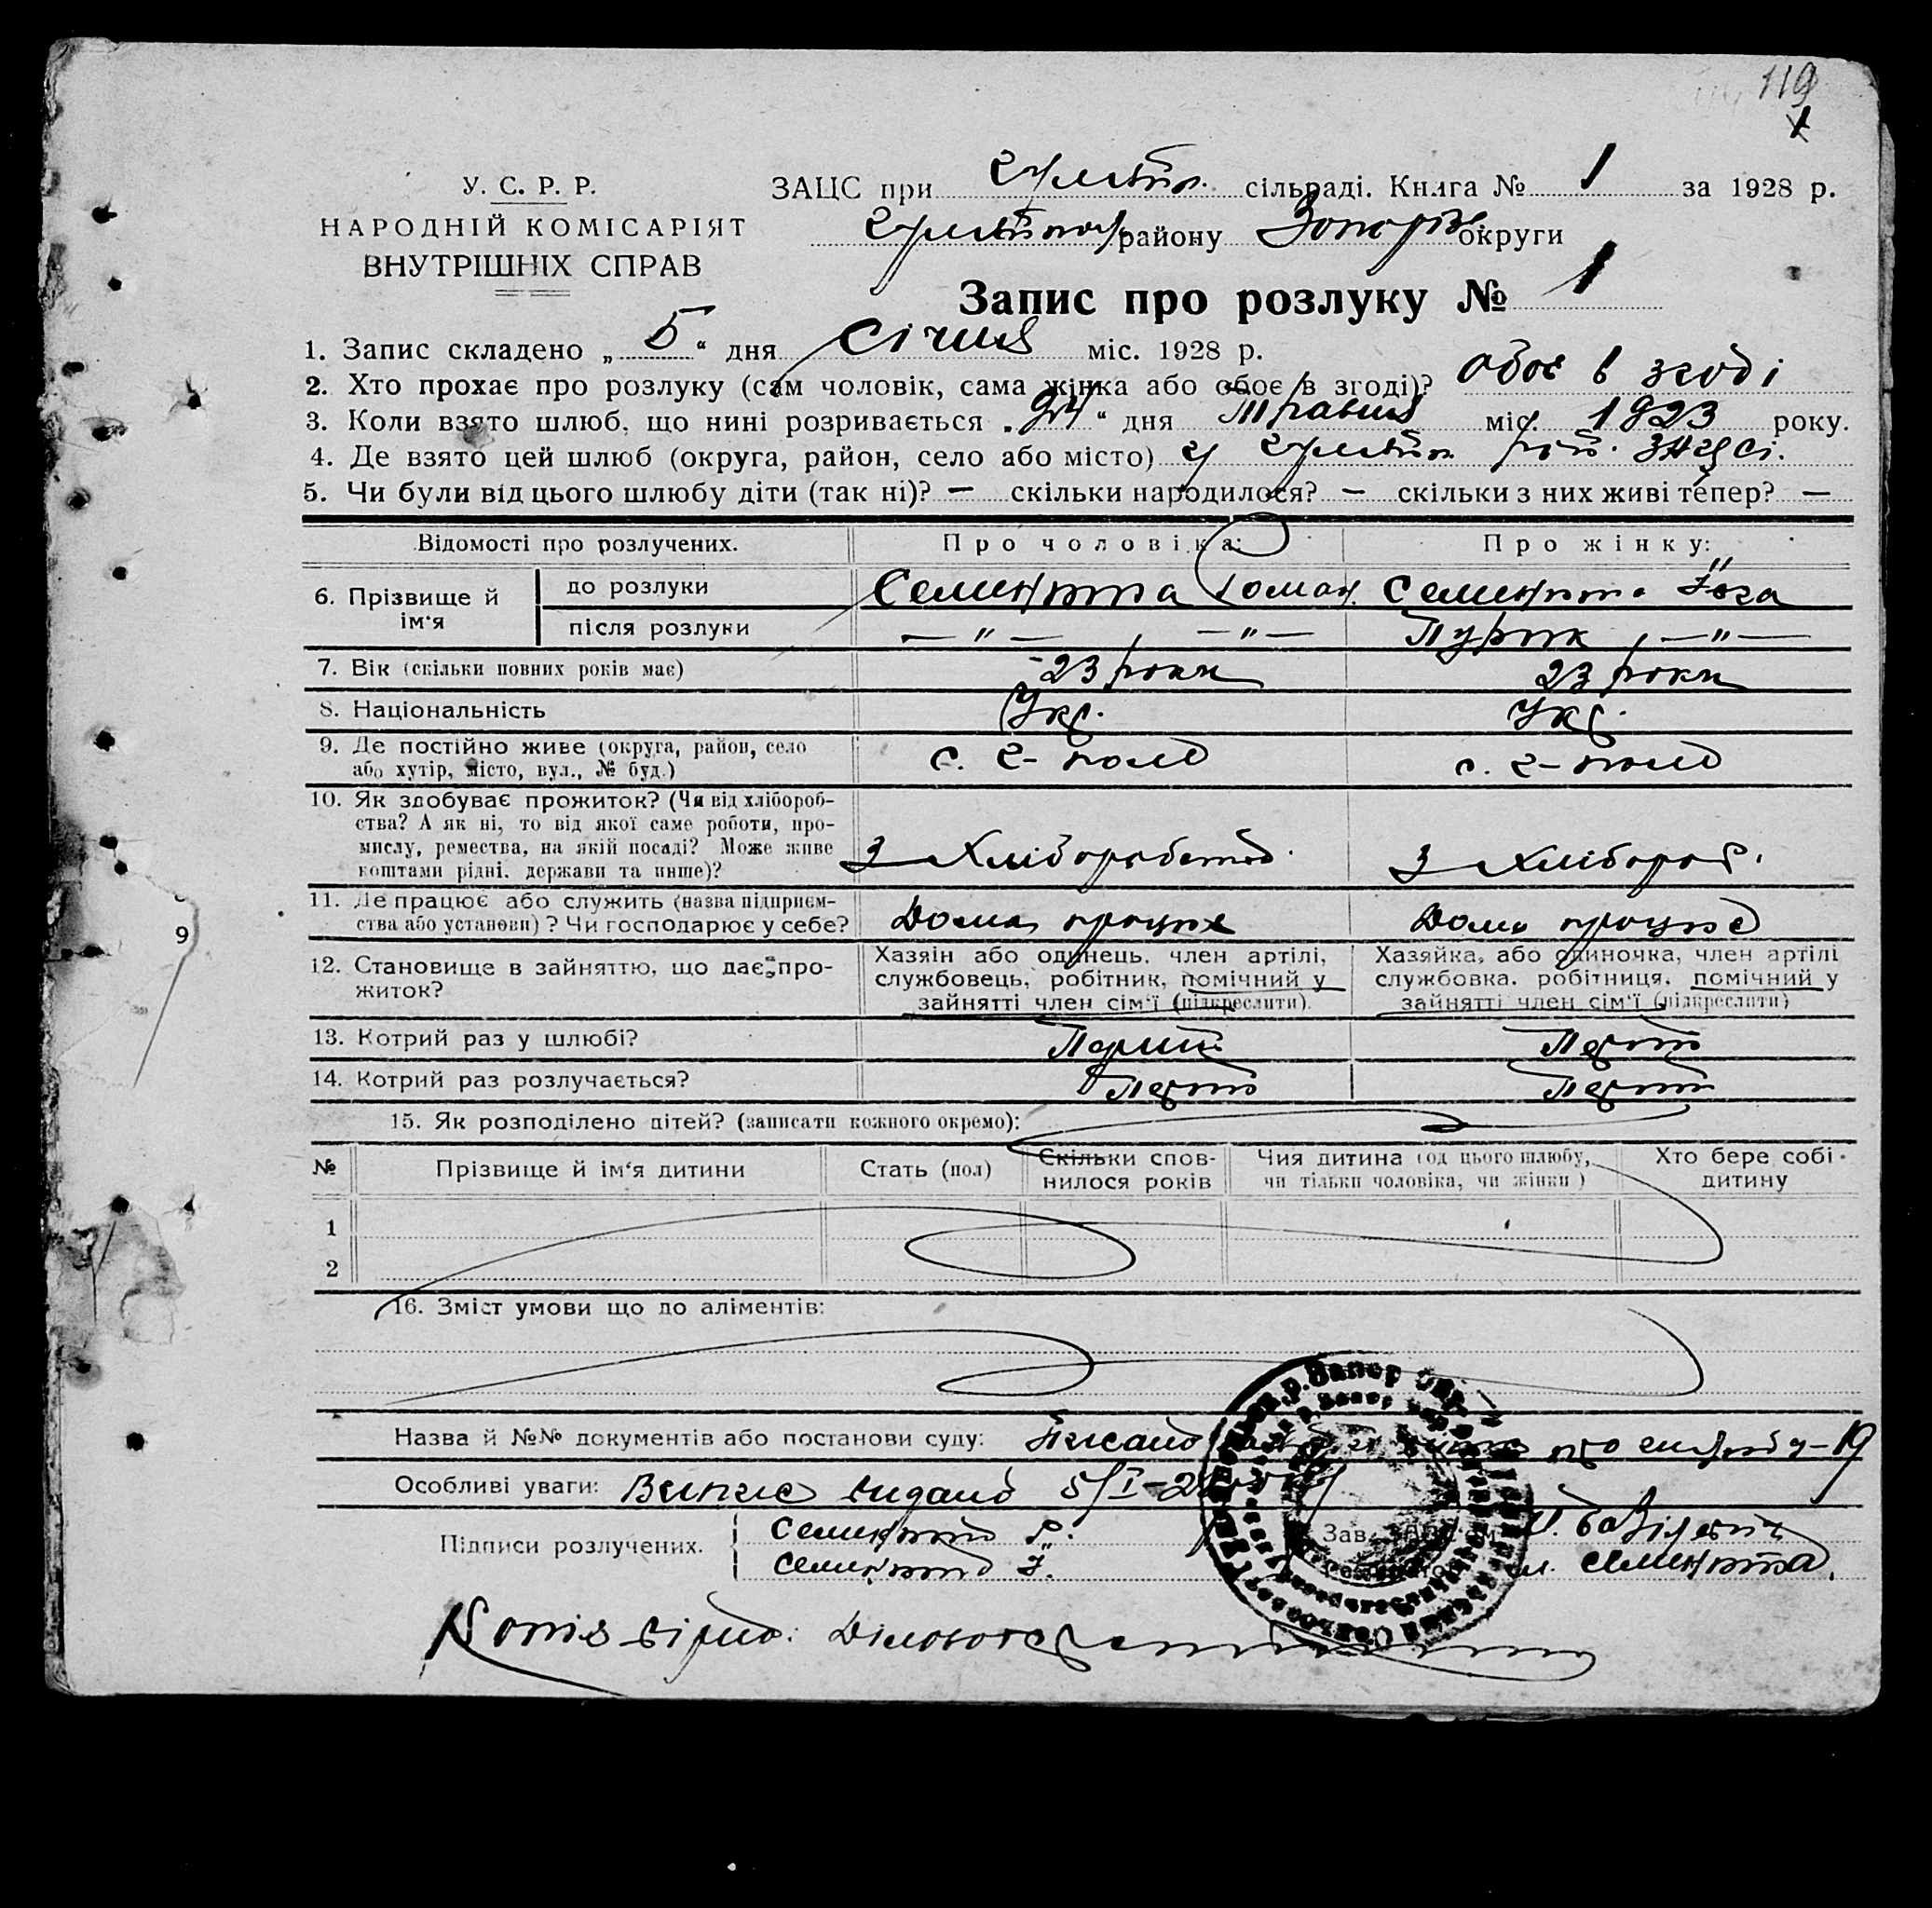 119
1
У. С. Р. Р.
НАРОДНІЙ КОМІСАРІЯТ
ВНУТРІШНІХ СПРАВ
ЗАЦС при сільраді. Книга № 1 за 1928 р.
району округи
Запис про розлуку № 1
1. Запис складено „ 5 “ дня Січня міс. 1928 р.
2. Хто прохає про розлуку (сам чоловік, сама жінка або обоє в згоді)? обоє в згоді
3. Коли взято шлюб, що нині розривається „ 24 “ дня Травня міс. 1923 року.
4. Де взято цей шлюб (округа, район, село або місто) у ЗАЦСі.
5. Чи були від цього шлюбу діти (так ні)? — скільки народилося? — скільки з них живі тепер? —
Відомості про розлучених. Про чоловіка: Про жінку:
6. Прізвище й ім‘я до розлуки Семенюта Роман. Семенюта
після розлуки — " — , — " — , — " —
7. Вік (скільки повних років має) 23 роки 23 роки
8. Національність Укр. Укр.
9. Де постійно живе (округа, район, село
або хутір, місто, вул., № буд.) с. Г-поле с. Г-поле
10. Як здобуває прожиток? (Чи від хлібороб-
ства? А як ні, то від якої саме роботи, про-
мислу, ремества, на якій посаді? Може живе
коштами рідні. держави та инше)? З Хліборобства. З Хлібороб.
11. Де працює або служить (назва підприєм-
ства або установи)? Чи господарює у себе? Дома працює Дома працює
12. Становище в зайняттю, що дає про-
житок?
Хазяін або одинець. член артілі,
службовець, робітник, помічний у
зайнятті член сім‘ї (підкреслити).
Хазяйка, або одиночка, член артілі
службовка. робітниця, помічний у
зайнятті член сім‘ї (підкреслити)
13. Котрий раз у шлюбі? Перший
14. Котрий раз розлучається?
15. Як розподілено дітей? (записати кожного окремо):
№ Прізвище й ім‘я дитини Стать (пол) Скільки спов-
нилося років Чия дитина (од цього шлюбу,
чи тільки чоловіка, чи жінки) Хто бере собі
дитину
1
2
16. Зміст умови що до аліментів:
Назва й №№ документів або постанови суду:
Особливі уваги: Випис видано 5/I-28
Підписи розлучених. Семенюта Р. Зав.
Семенюта Семенюта.
Копія вірна: Діловод
9